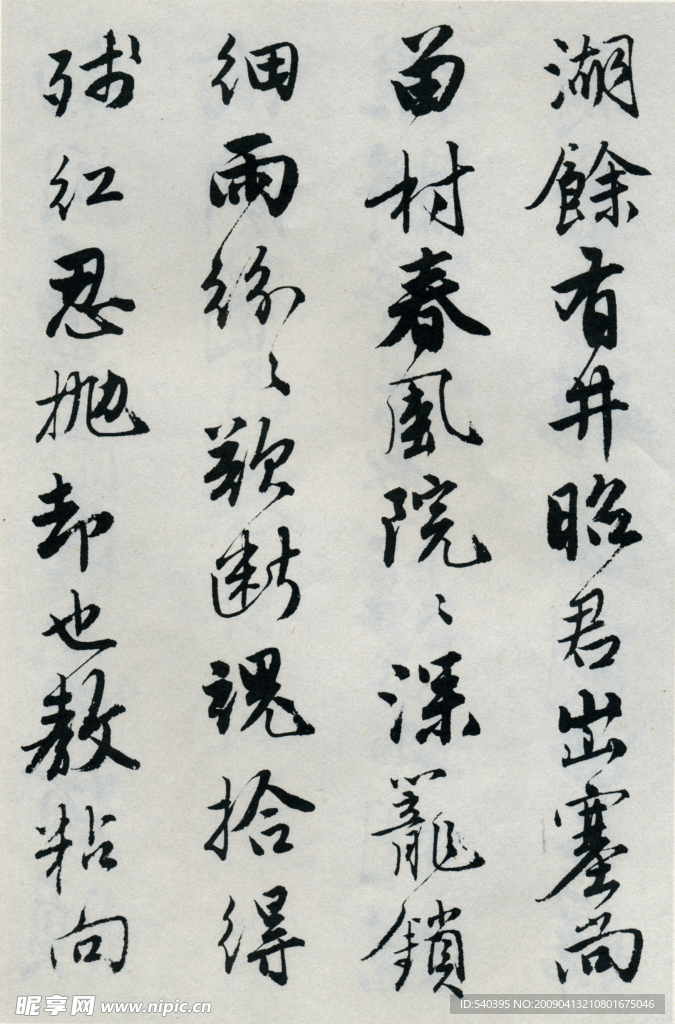 湖餘有井昭君出塞尚
留村春風院〻深籠鎖
細雨紛〻欲斷魂拾得
殘紅忍拋却也教粘向
昵享网 www.nipic.cn
ID:540395 NO:20090413210801675046